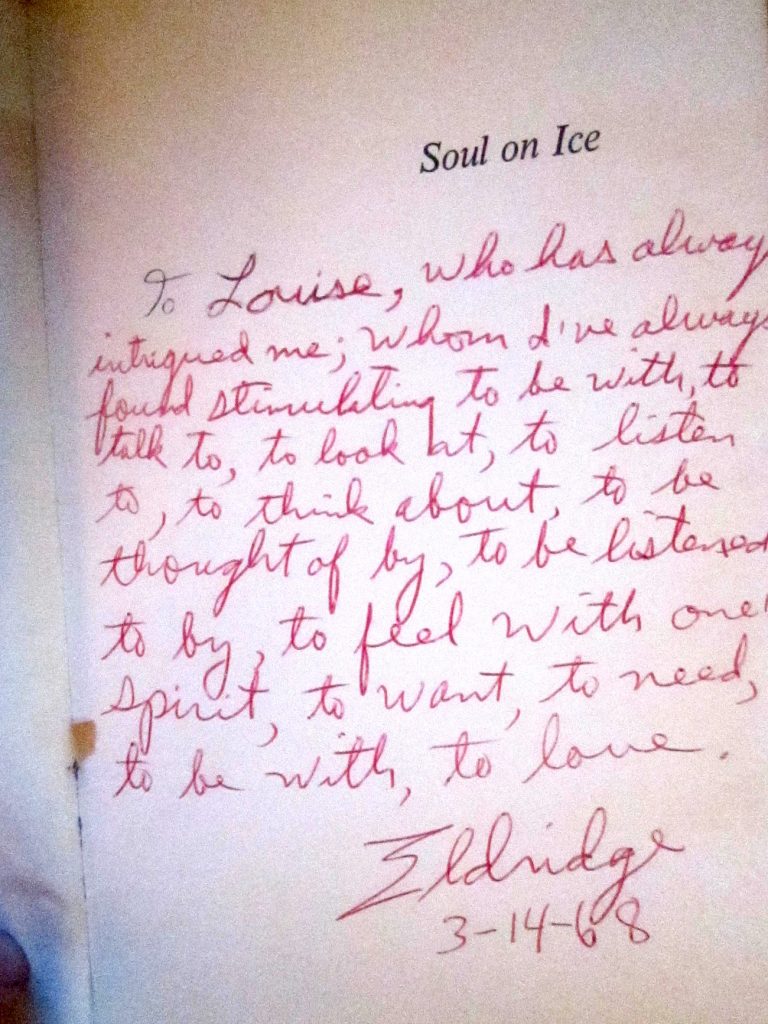 Soul on Ice
To Louise, who has always
intrigued me; whom I've always
found stimulating to be with, to
talk to, to look at, to listen
to, to think about, to be
thought of by, to be listened
to by, to feel with one'
spirit, to want, to need,
to be with, to love.
Eldridge
3-14-68